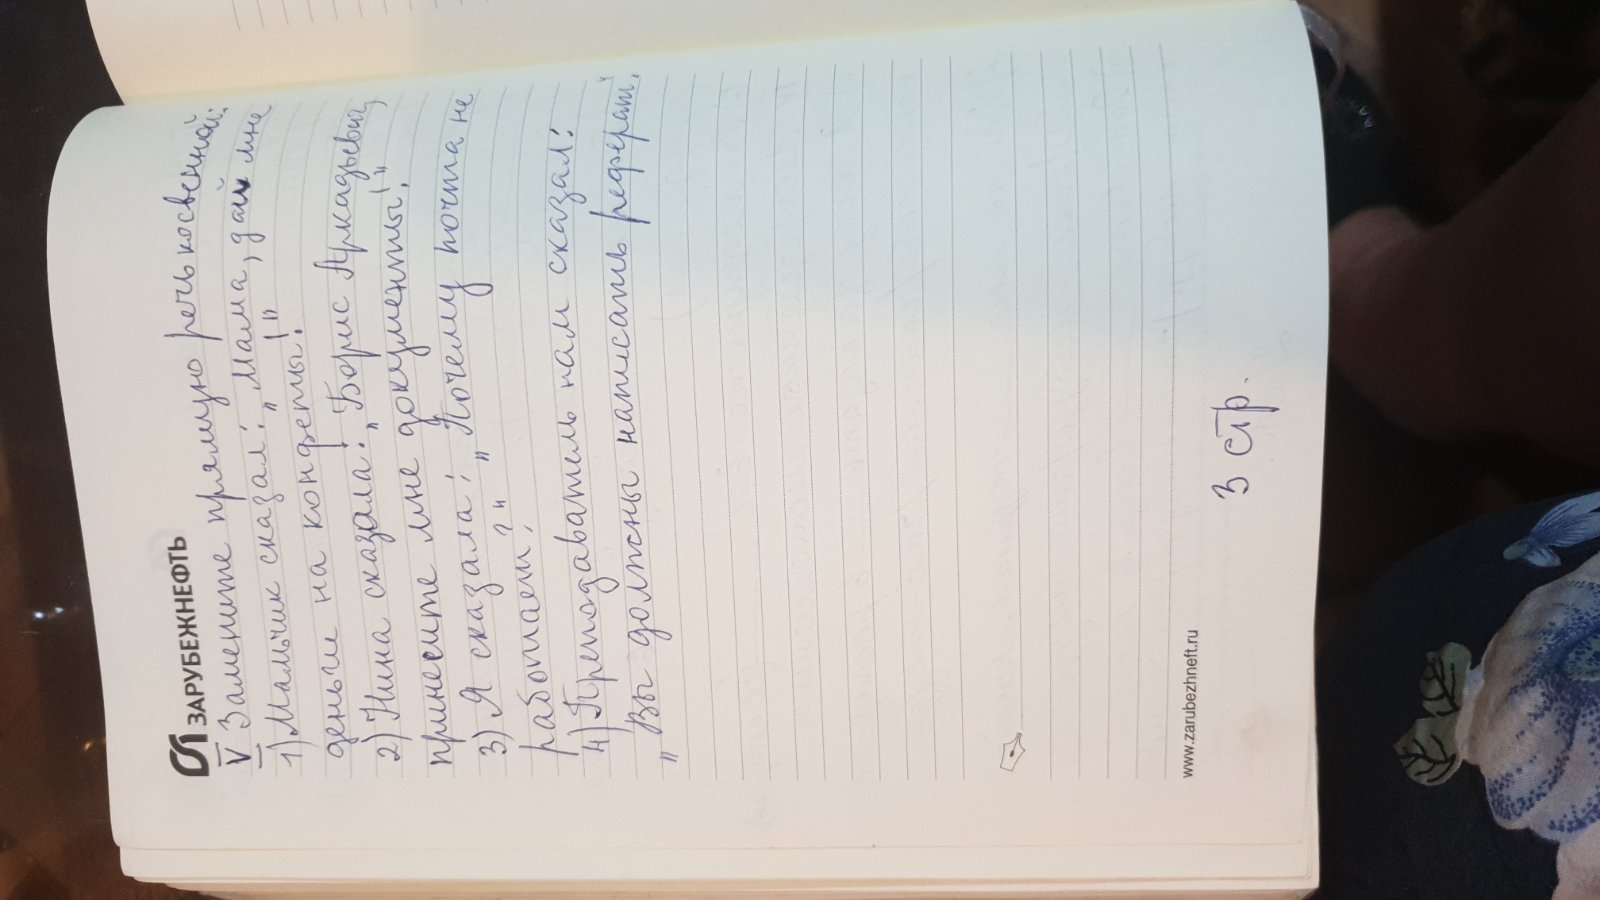 ЗАРУБЕЖНЕФТЬ
V Замените прямую речь косвенной:
1) Мальчик сказал: „Мама, дай мне
деньги на конфеты!"
2) Нина сказала: „Борис Аркадьевич,
принесите мне документы!"
3) Я сказала: „Почему почта не
работает?"
4) Преподаватель нам сказал:
„Вы должны написать реферат".
www.zarubezhneft.ru
3 стр.